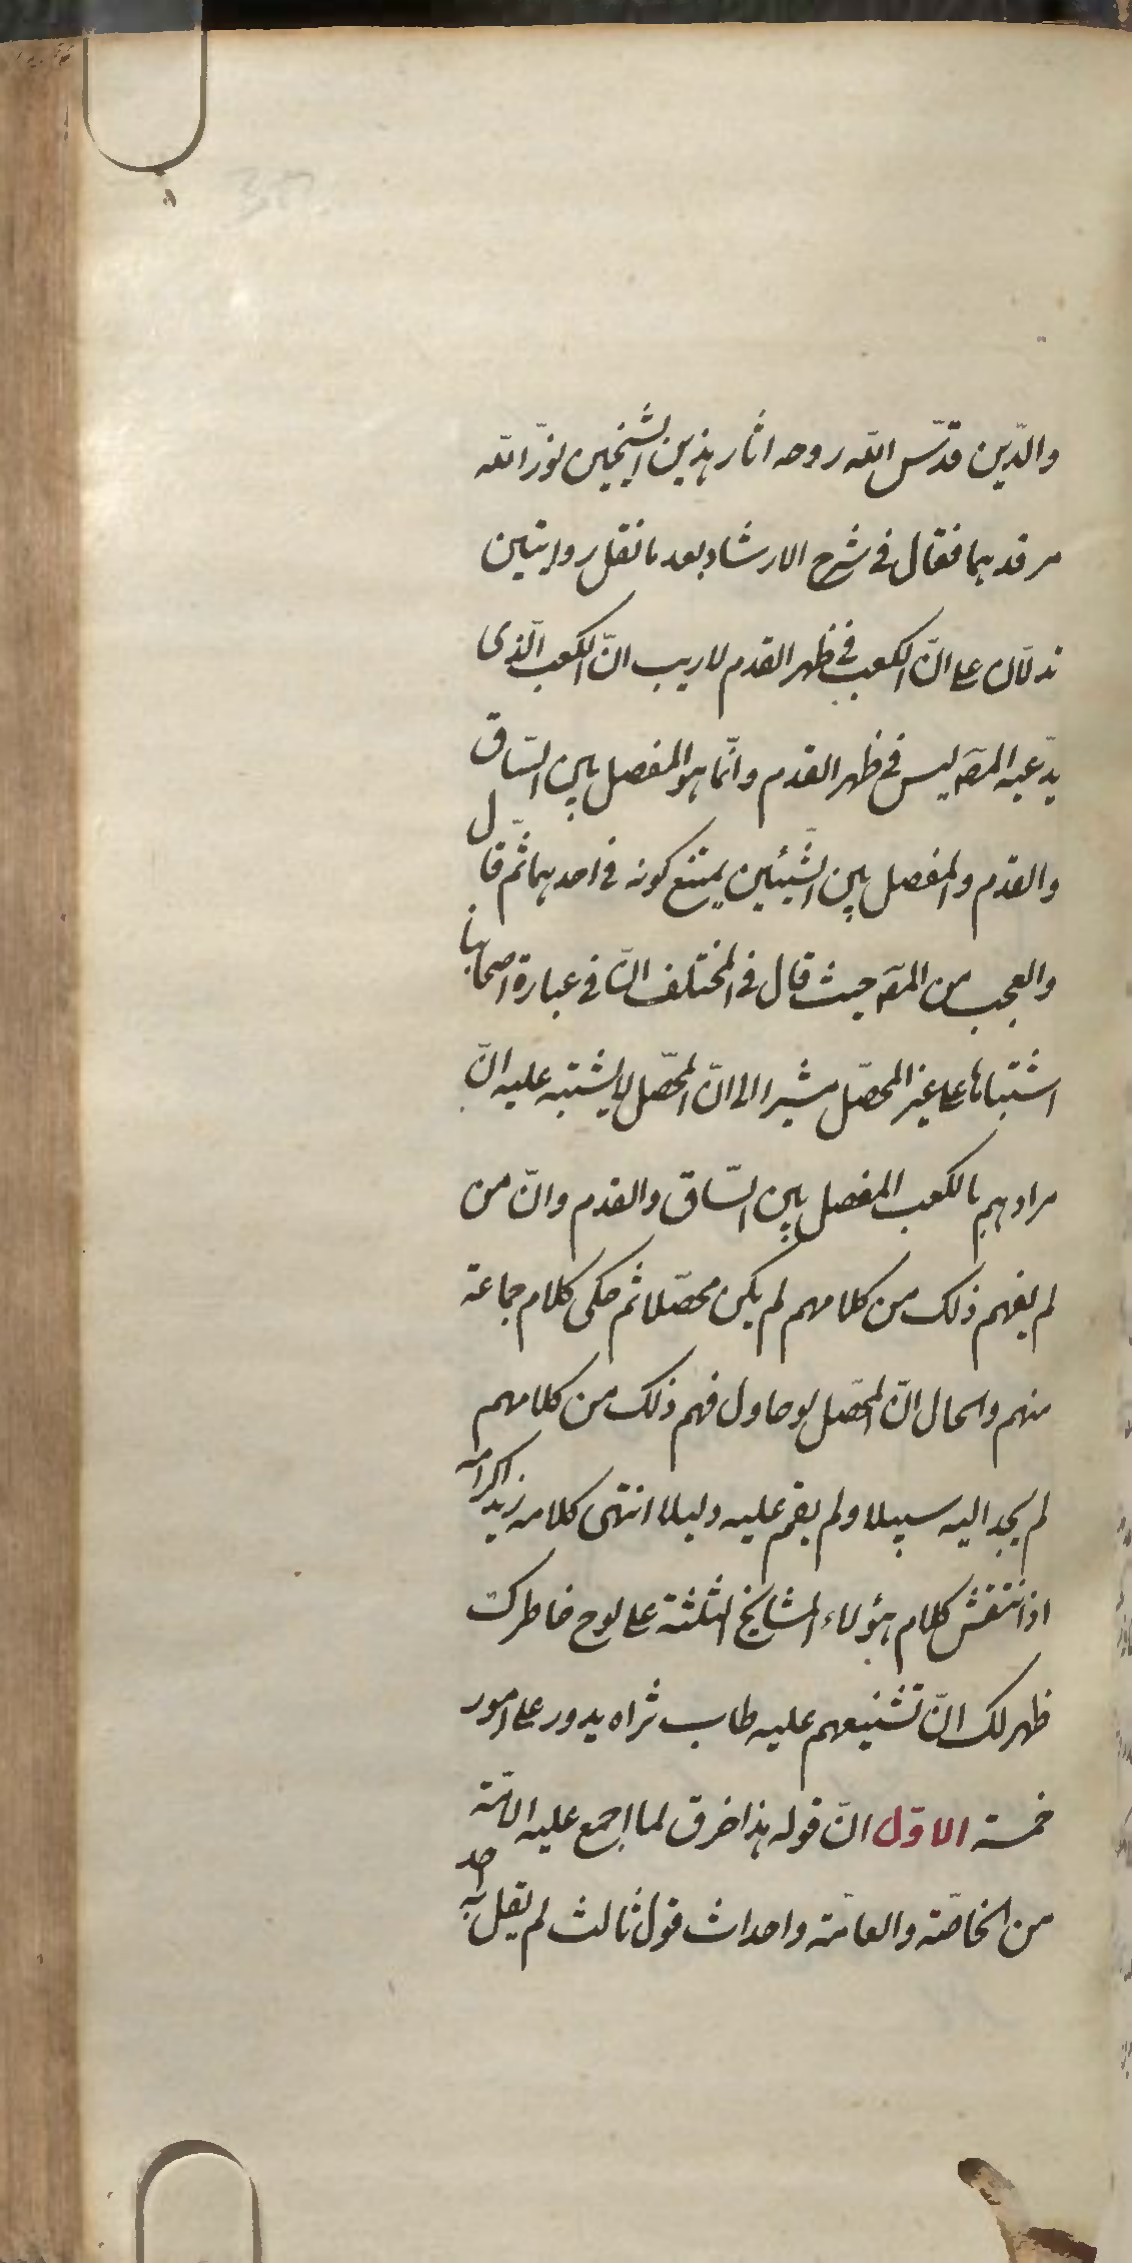 والدّين قدّس اللّه روحه اثار هذين الشيخين نوّر اللّه
مرقدهما فقال فى شرح الارشاد بعد ما نقل روايتين
تدلّان على انّ الكعب فى ظهر القدم لا ريب انّ الكعب الّذى
يدّعيه المصّ ليس فى ظهر القدم وانّما هو المفصل بين السّاق
والقدم والمفصل بين الشّيئين يمتنع كونه فى احدهما ثمّ قال
والعجب من المصّ حيث قال فى المختلف انّ فى عبارة اصحابنا
اشتباها على غير المحصّل مشيرا الى انّ المحصّل لا يشتبه عليه انّ
مرادهم بالكعب المفصل بين السّاق والقدم وانّ من
لم يفهم ذلك من كلامهم لم يكن محصّلا ثم حكى كلام جماعة
منهم والحال انّ المحصّل لو حاول فهم ذلك من كلامهم
لم يجد اليه سبيلا ولم يقم عليه دليلا انتهى كلامه زيد اكرامه
اذا انتقش كلام هؤلاء المشايخ الثلثة على لوح خاطرك
ظهر لك انّ تشنيعهم عليه طاب ثراه يدور على امور
خمسة الاوّل انّ قوله هذا خرق لما اجمع عليه الامّة
من الخاصّة والعامّة واحداث قول ثالث لم يقل به احد